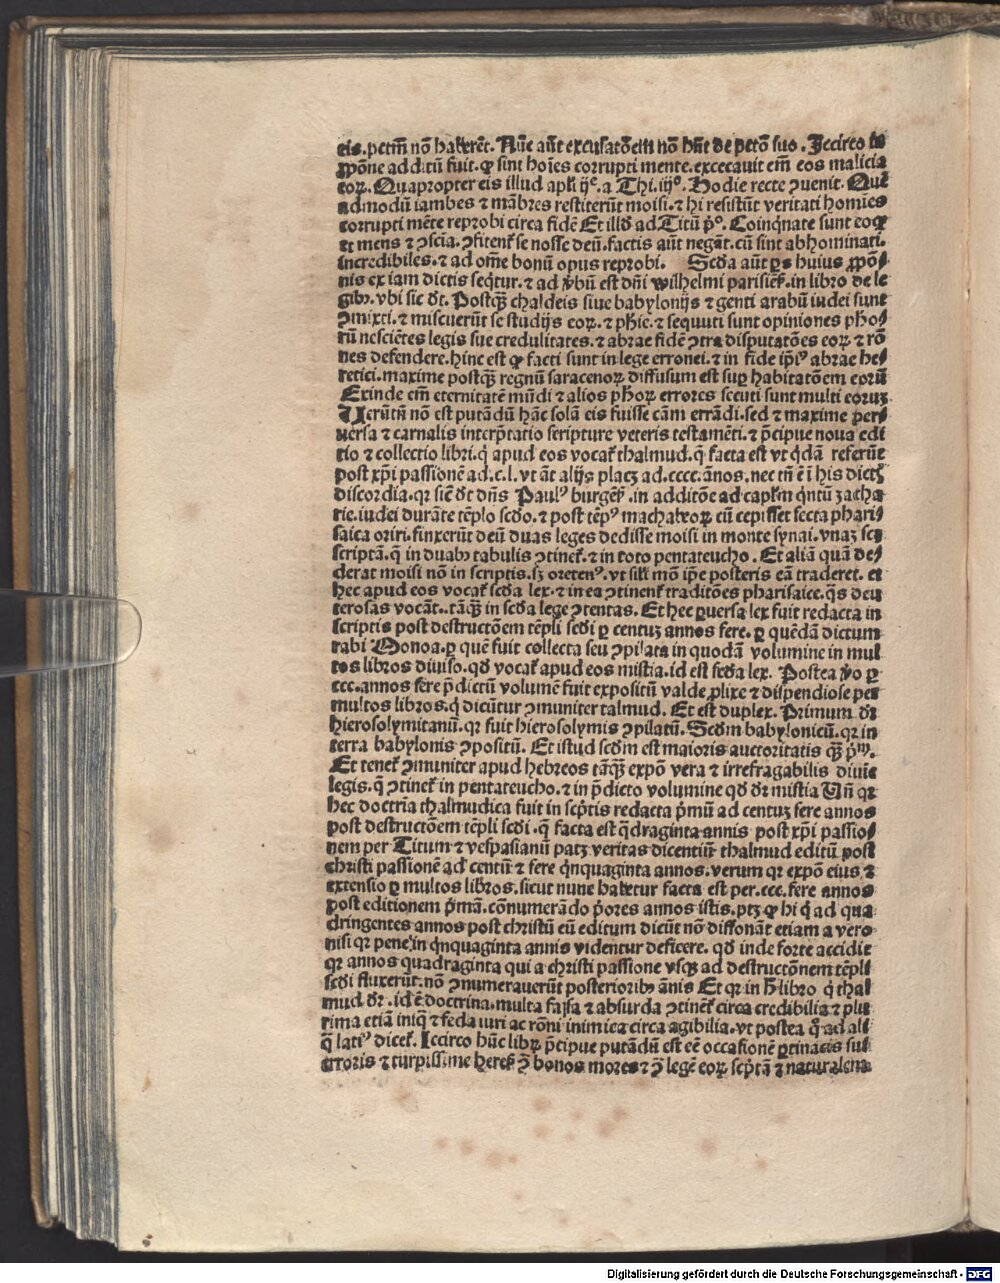 eis. petm̄ nō haberēt. Nūc aūt excusatōem nō hn̄t de pctō suo. Iccirco in
ꝓpōne additū fuit. ꝙ sint hoīes corrupti mente. excecauit em̄ eos malicia
eoꝝ. Quapropter eis illud apl̓i ijᶜ. a Thi. iijᵒ. Hodie recte ꝯuenit. Quē
admodū iambes ⁊ mābres restiterūt moisi. ⁊ hi resistūt veritati homīes
corrupti mēte reprobi circa fidē Et illd̓ ad Titū pᵒ. Coinq̄nate sunt eoꝝ
et mens ⁊ ꝯscīa. ꝯfitent̓ se nosse deū. factis aūt negāt. cū sint abhominati.
increbiles. ⁊ ad om̄e bonū opus reprobi. Scd̓a aūt ꝑs huius ꝓpōi
nis ex iam dictis seq̄tur. ⁊ ad v̓bū est dn̄i wilhelmi parisieñ. in libro de le
gibꝫ. vbi sic d̓t. Postqꝫ chaldeis siue babylonijs ⁊ genti arabū iudei sunt
ꝯmixti. ⁊ miscuerūt se studijs eoꝝ. ⁊ ph̓ie. ⁊ sequuti sunt opiniones ph̓o
rū nesciētes legis sue credulitates. ⁊ abrae fidē ꝯtra disputatōes eoꝝ ⁊ rō
nes defendere. hinc est ꝙ facti sunt in lege erronei. ⁊ in fide ip̄iᵘˢ abrae he
retici. maxime postqꝫ regnū saracenoꝝ diffusum est suꝑ habitatōem eorū
Exinde em̄ eternitatē mūdi ⁊ alios ph̓oꝝ errores secuti sunt multi eorum
Uerūtn̄ nō est putādū hāc solā eis fuisse cām errādi. sed ⁊ maxime per
uersa ⁊ carnalis interp̄tatio scripture veteris testamēti. ⁊ p̄cipue noua edi
tio ⁊ collectio libri. q̄ apud eos vocat̓ thalmud. q̄ facta est vt q̄dā referūt
post xp̄i passionē ad. c. l. vt āt alijs placꝫ ad. cccc. ānos. nec tn̄ ē ī his dictꝭ
discordia. qr sic d̓t dn̄s Paulᵘˢ burgeñ. in additōe ad capl̄m q̄ntū zacha
rie. iudei durāte tēplo scd̓o. ⁊ post tēpᵘˢ machabeoꝝ cū cepisset secta phari
saica oriri. finxerūt deū duas leges dedisse moisi in monte synai. vnaꝫ scꝫ
scriptā. q̄ in duabꝫ tabulis ꝯtinet̓. ⁊ in toto pentateucho. Et aliā quā de
derat moisi nō in scriptis. sꝫ oretenᵘˢ. vt sil̓i mō ip̄e posteris eā traderet. et
hec apud eos vocat̓ scd̓a lex. ⁊ in ea ꝯtinent̓ traditōes pharisaice. q̄s deu
terosas vocāt. tāqꝫ in scd̓a lege ꝯtentas. Et hec ꝑuersa lex fuit redacta in
scriptis post destructōem tēpli scd̓i ꝑ centuꝫ annos fere. ꝑ quēdā dictum
rabi Monoa. ꝑ quē fuit collecta seu ꝯpilata in quodā volumine in mul
tos libros diuiso. qd̓ vocat̓ apud eos mistia. id est scd̓a lex. Postea v̓o ꝑ
ccc. annos fere p̄dictū volumē fuit expositū valde ꝓlixe ⁊ dispendiose per
multos libros. q̄ dicūtur ꝯmuniter talmud. Et est duplex. Primum d̓r
hierosolymitanū. qr fuit hierosolymis ꝯpilatū. Scd̓m babylonicū. qr in
terra babylonis ꝯpositū. Et istud scd̓m est maioris auctoritatis qꝫ pᵐ.
Et tenet̓ ꝯmuniter apud hebreos tāqꝫ expō vera ⁊ irrefragabilis diuīe
legis. q̄ ꝯtinet̓ in pentateucho. ⁊ in p̄dicto volumine qd̓ d̓r mistia Un̄ qr
hec doctrīa thalmudica fuit in scp̄tis redacta p̄mū ad centuꝫ fere annos
post destructōem tēpli scd̓i. q̄ facta est q̄draginta annis post xp̄i passio
nem per Titum ⁊ vespasianū patꝫ veritas dicentiū thalmud editū post
christi passionē ad centū ⁊ fere q̄nquaginta annos. verum qr expō eius ⁊
extensio ꝑ multos libros. sicut nunc habetur facta est per. ccc. fere annos
post editionem p̄mā. cōnumerādo p̄ores annos istis. ptꝫ ꝙ hi q̄ ad qua
dringentes annos post christū eū editum dicūt nō dissonāt etiam a vero
nisi qr pene in q̄nquaginta annis videntur deficere. qd̓ inde forte accidit
qr annos quadraginta qui a christi passione vsqꝫ ad destructōnem tēpli
scd̓i fluxerūt. nō ꝯnumerauerūt posterioribꝫ ānis Et qr in h̓ libro q̄ thal
mud d̓r. id ē doctrina. multa falsa ⁊ absurda ꝯtinet̓ circa credibilia ⁊ plu
rima etiā iniq̄ ⁊ feda iuri ac rōni inimica circa agibilia. vt postea q̄ ad ali
q̄ latiᵘˢ dicet̓. Iccirco hūc librꝫ p̄cipue putādū est eē occasionē ꝑtinacis sui
erroris ⁊ turpissime heres̓ ꝯ̄ bonos mores ⁊ ꝯ̄ legē eoꝝ scp̄tā ⁊ naturalem
Digitalisierung gefördert durch die Deutsche Forschungsgemeinschaft - DFG